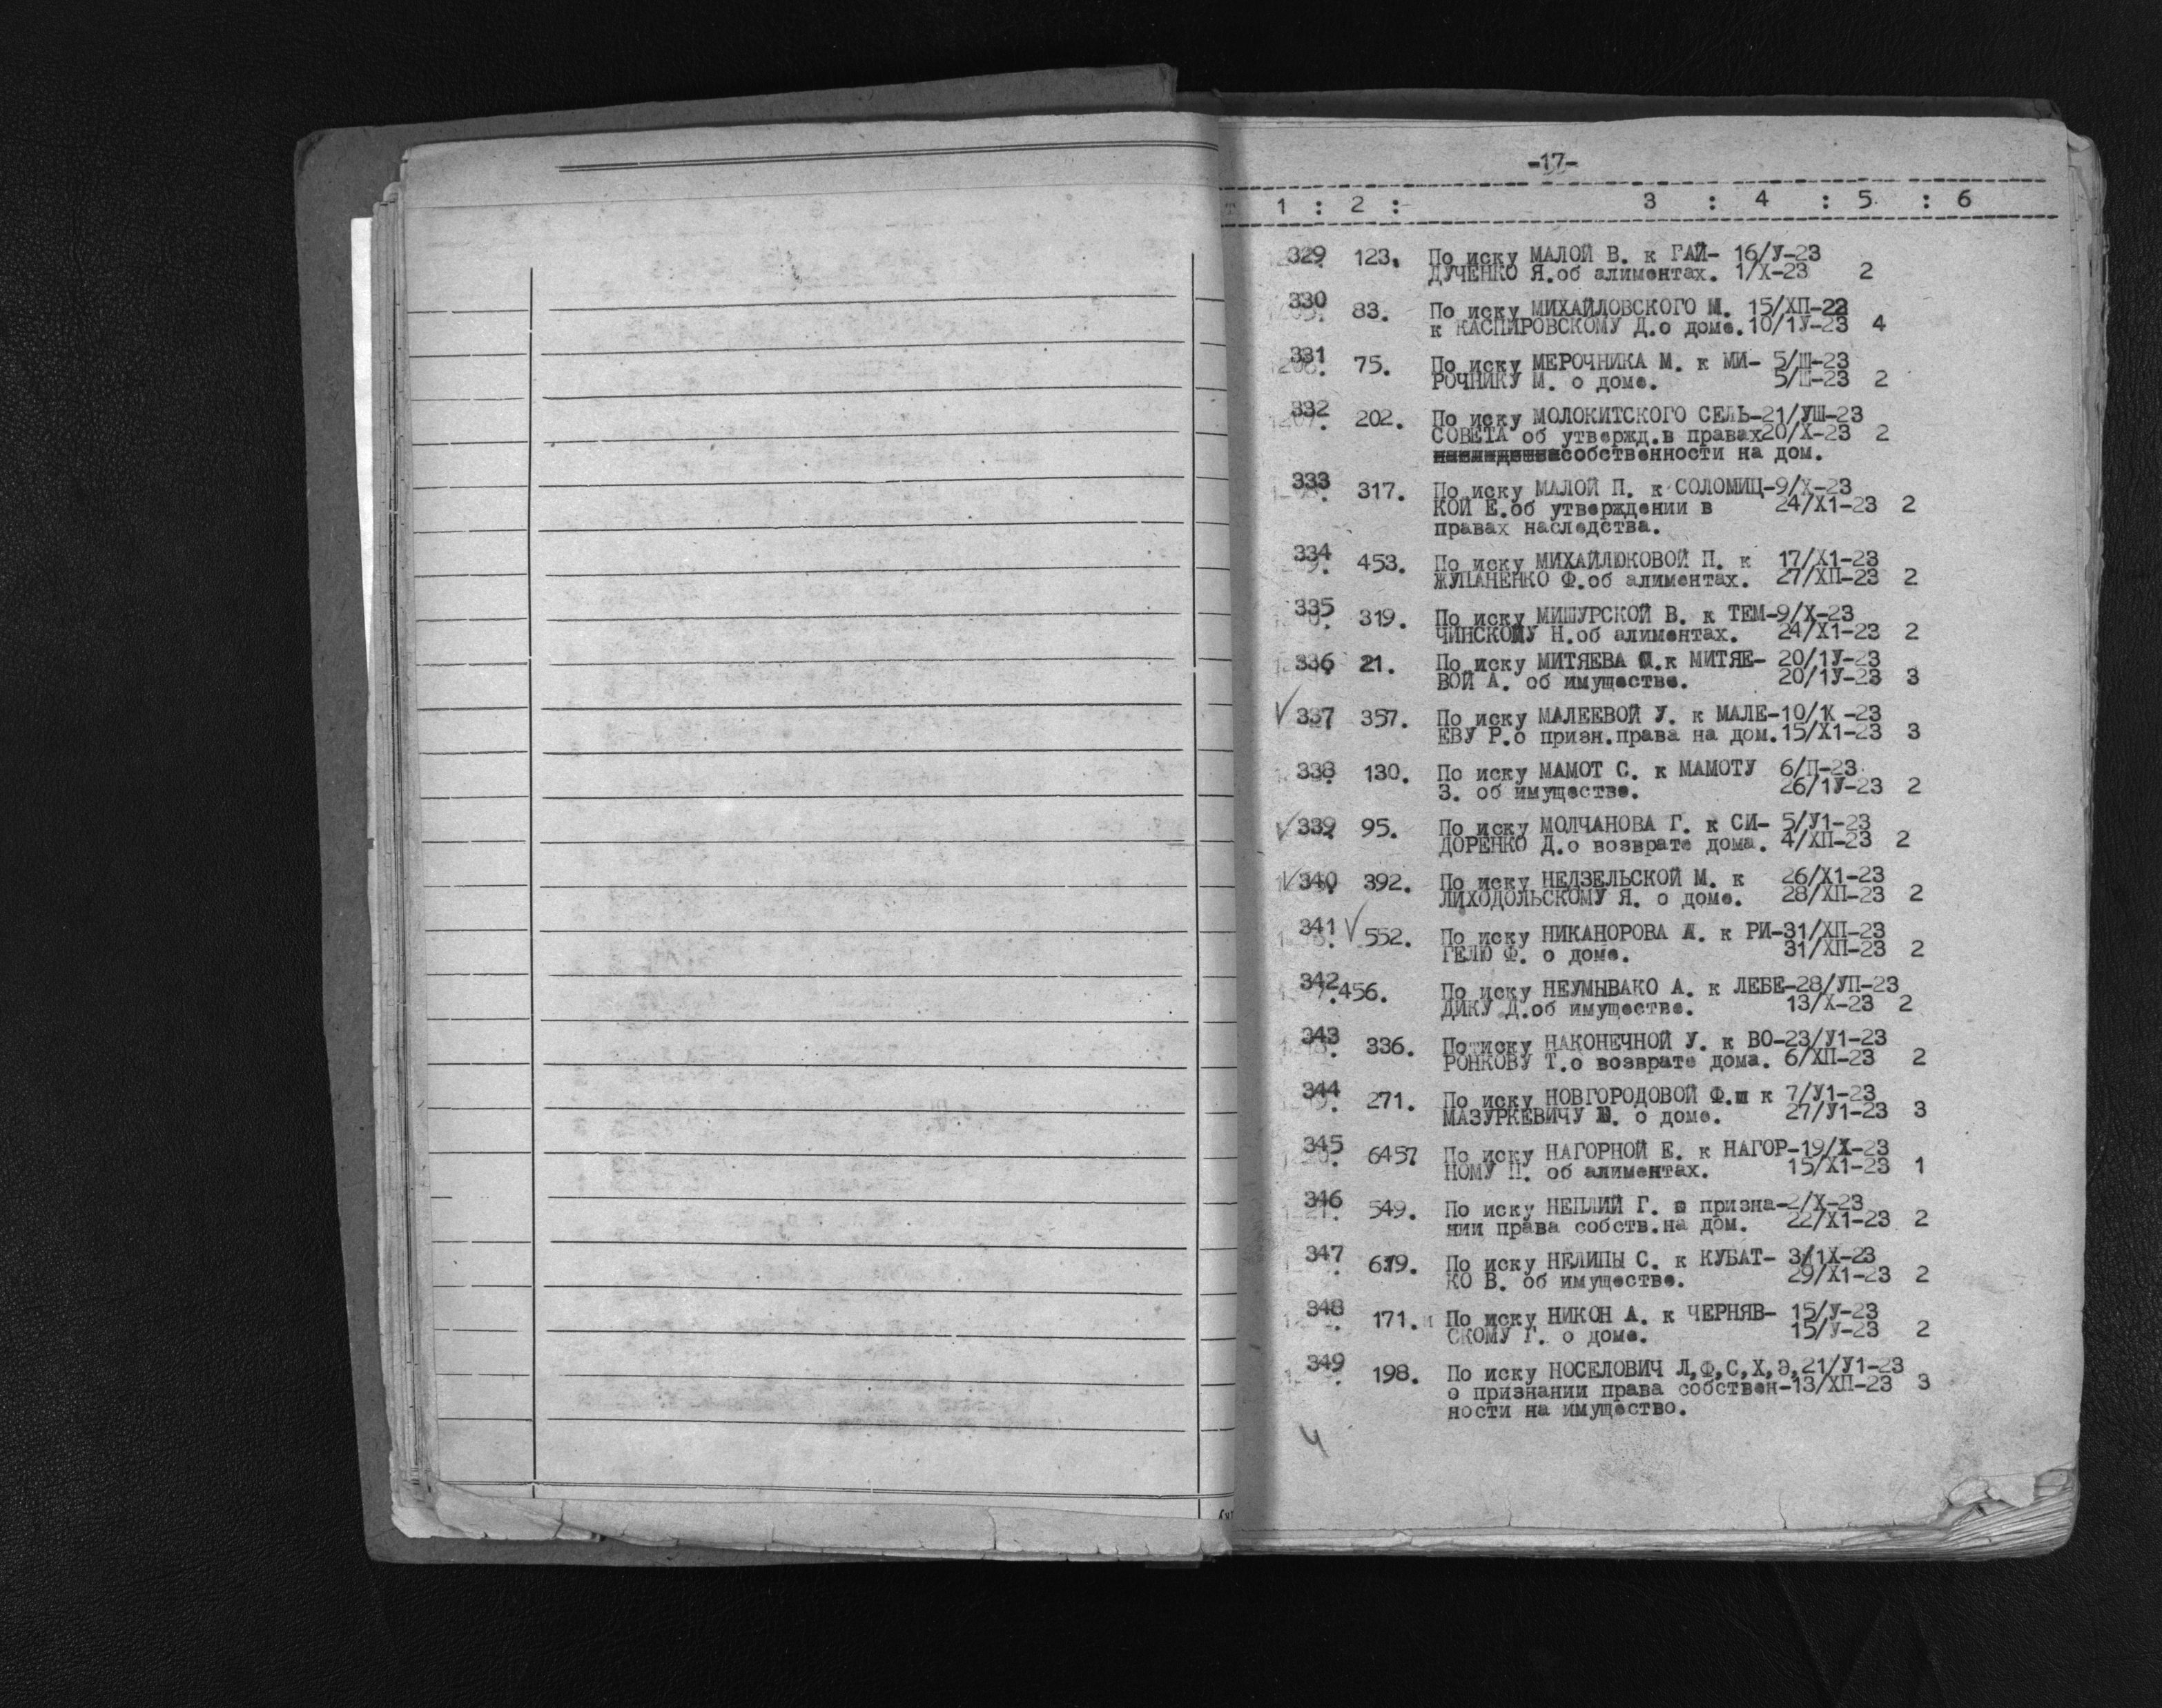 -17-
1 : 2 : 3 : 4 : 5 : 6
329 123. По иску МАЛОЙ В. к ГАЙ- 16/У-23
ДУЧЕНКО Я.об алиментах. 1/Х-23 2
330 83. По иску МИХАЙЛОВСКОГО М. 15/ХП-22
к КАСПИРОВСКОМУ Д.о доме. 10/1У-23 4
331 75. По иску МЕРОЧНИКА М. к МИ- 5/Ш-23
РОЧНИКУ М. о доме. 5/Ш-23 2
332 202. По иску МОЛОКИТСКОГО СЕЛЬ-21/УШ-23
СОВЕТА об утвержд.в правах20/Х-23 2
собственности на дом.
333 317. По иску МАЛОЙ П. к СОЛОМИЦ-9/Х-23
КОЙ Е.об утверждении в 24/Х1-23 2
правах наследства.
334 453. По иску МИХАЙЛЮКОВОЙ П. к 17/Х1-23
ЖУПАНЕНКО Ф.об алиментах. 27/ХП-23 2
335 319. По иску МИШУРСКОЙ В. к ТЕМ-9/Х-23
ЧИНСКОМУ Н.об алиментах. 24/Х1-23 2
336 21. По иску МИТЯЕВА к МИТЯЕ- 20/1У-23
ВОЙ А. об имуществе. 20/1У-23 3
337 357. По иску МАЛЕЕВОЙ У. к МАЛЕ-10/К -23
ЕВУ Р.о призн.права на дом.15/Х1-23 3
338 130. По иску МАМОТ С. к МАМОТУ 6/П-23
З. об имуществе. 26/1У-23 2
339 95. По иску МОЛЧАНОВА Г. к СИ- 5/У1-23
ДОРЕНКО Д.о возврате дома. 4/ХП-23 2
340 392. По иску НЕДЗЕЛЬСКОЙ М. к 26/Х1-23
ЛИХОДОЛЬСКОМУ Я. о доме. 28/ХП-23 2
341 552. По иску НИКАНОРОВА А. к РИ-31/ХП-23
ГЕЛЮ Ф. о доме. 31/ХП-23 2
342 456. По иску НЕУМЫВАКО А. к ЛЕБЕ-28/УП-23
ДИКУ Д.об имуществе. 13/Х-23 2
343 336. По иску НАКОНЕЧНОЙ У. к ВО-23/У1-23
РОНКОВУ Т.о возврате дома. 6/ХП-23 2
344 271. По иску НОВГОРОДОВОЙ Ф. к 7/У1-23
МАЗУРКЕВИЧУ Ю. о доме. 27/У1-23 3
345 6457 По иску НАГОРНОЙ Е. к НАГОР-19/Х-23
НОМУ П. об алиментах. 15/Х1-23 1
346 549. По иску НЕПЛИЙ Г. о призна-2/Х-23
нии права собств.на дом. 22/Х1-23 2
347 679. По иску НЕЛИПЫ С. к КУБАТ- 3/1Х-23
КО В. об имуществе. 29/Х1-23 2
348 171. По иску НИКОН А. к ЧЕРНЯВ- 15/У-23
СКОМУ Г. о доме. 15/У-23 2
349 198. По иску НОСЕЛОВИЧ Л,Ф,С,Х,Э,21/У1-23
о признании права собствен-13/ХП-23 3
ности на имущество.